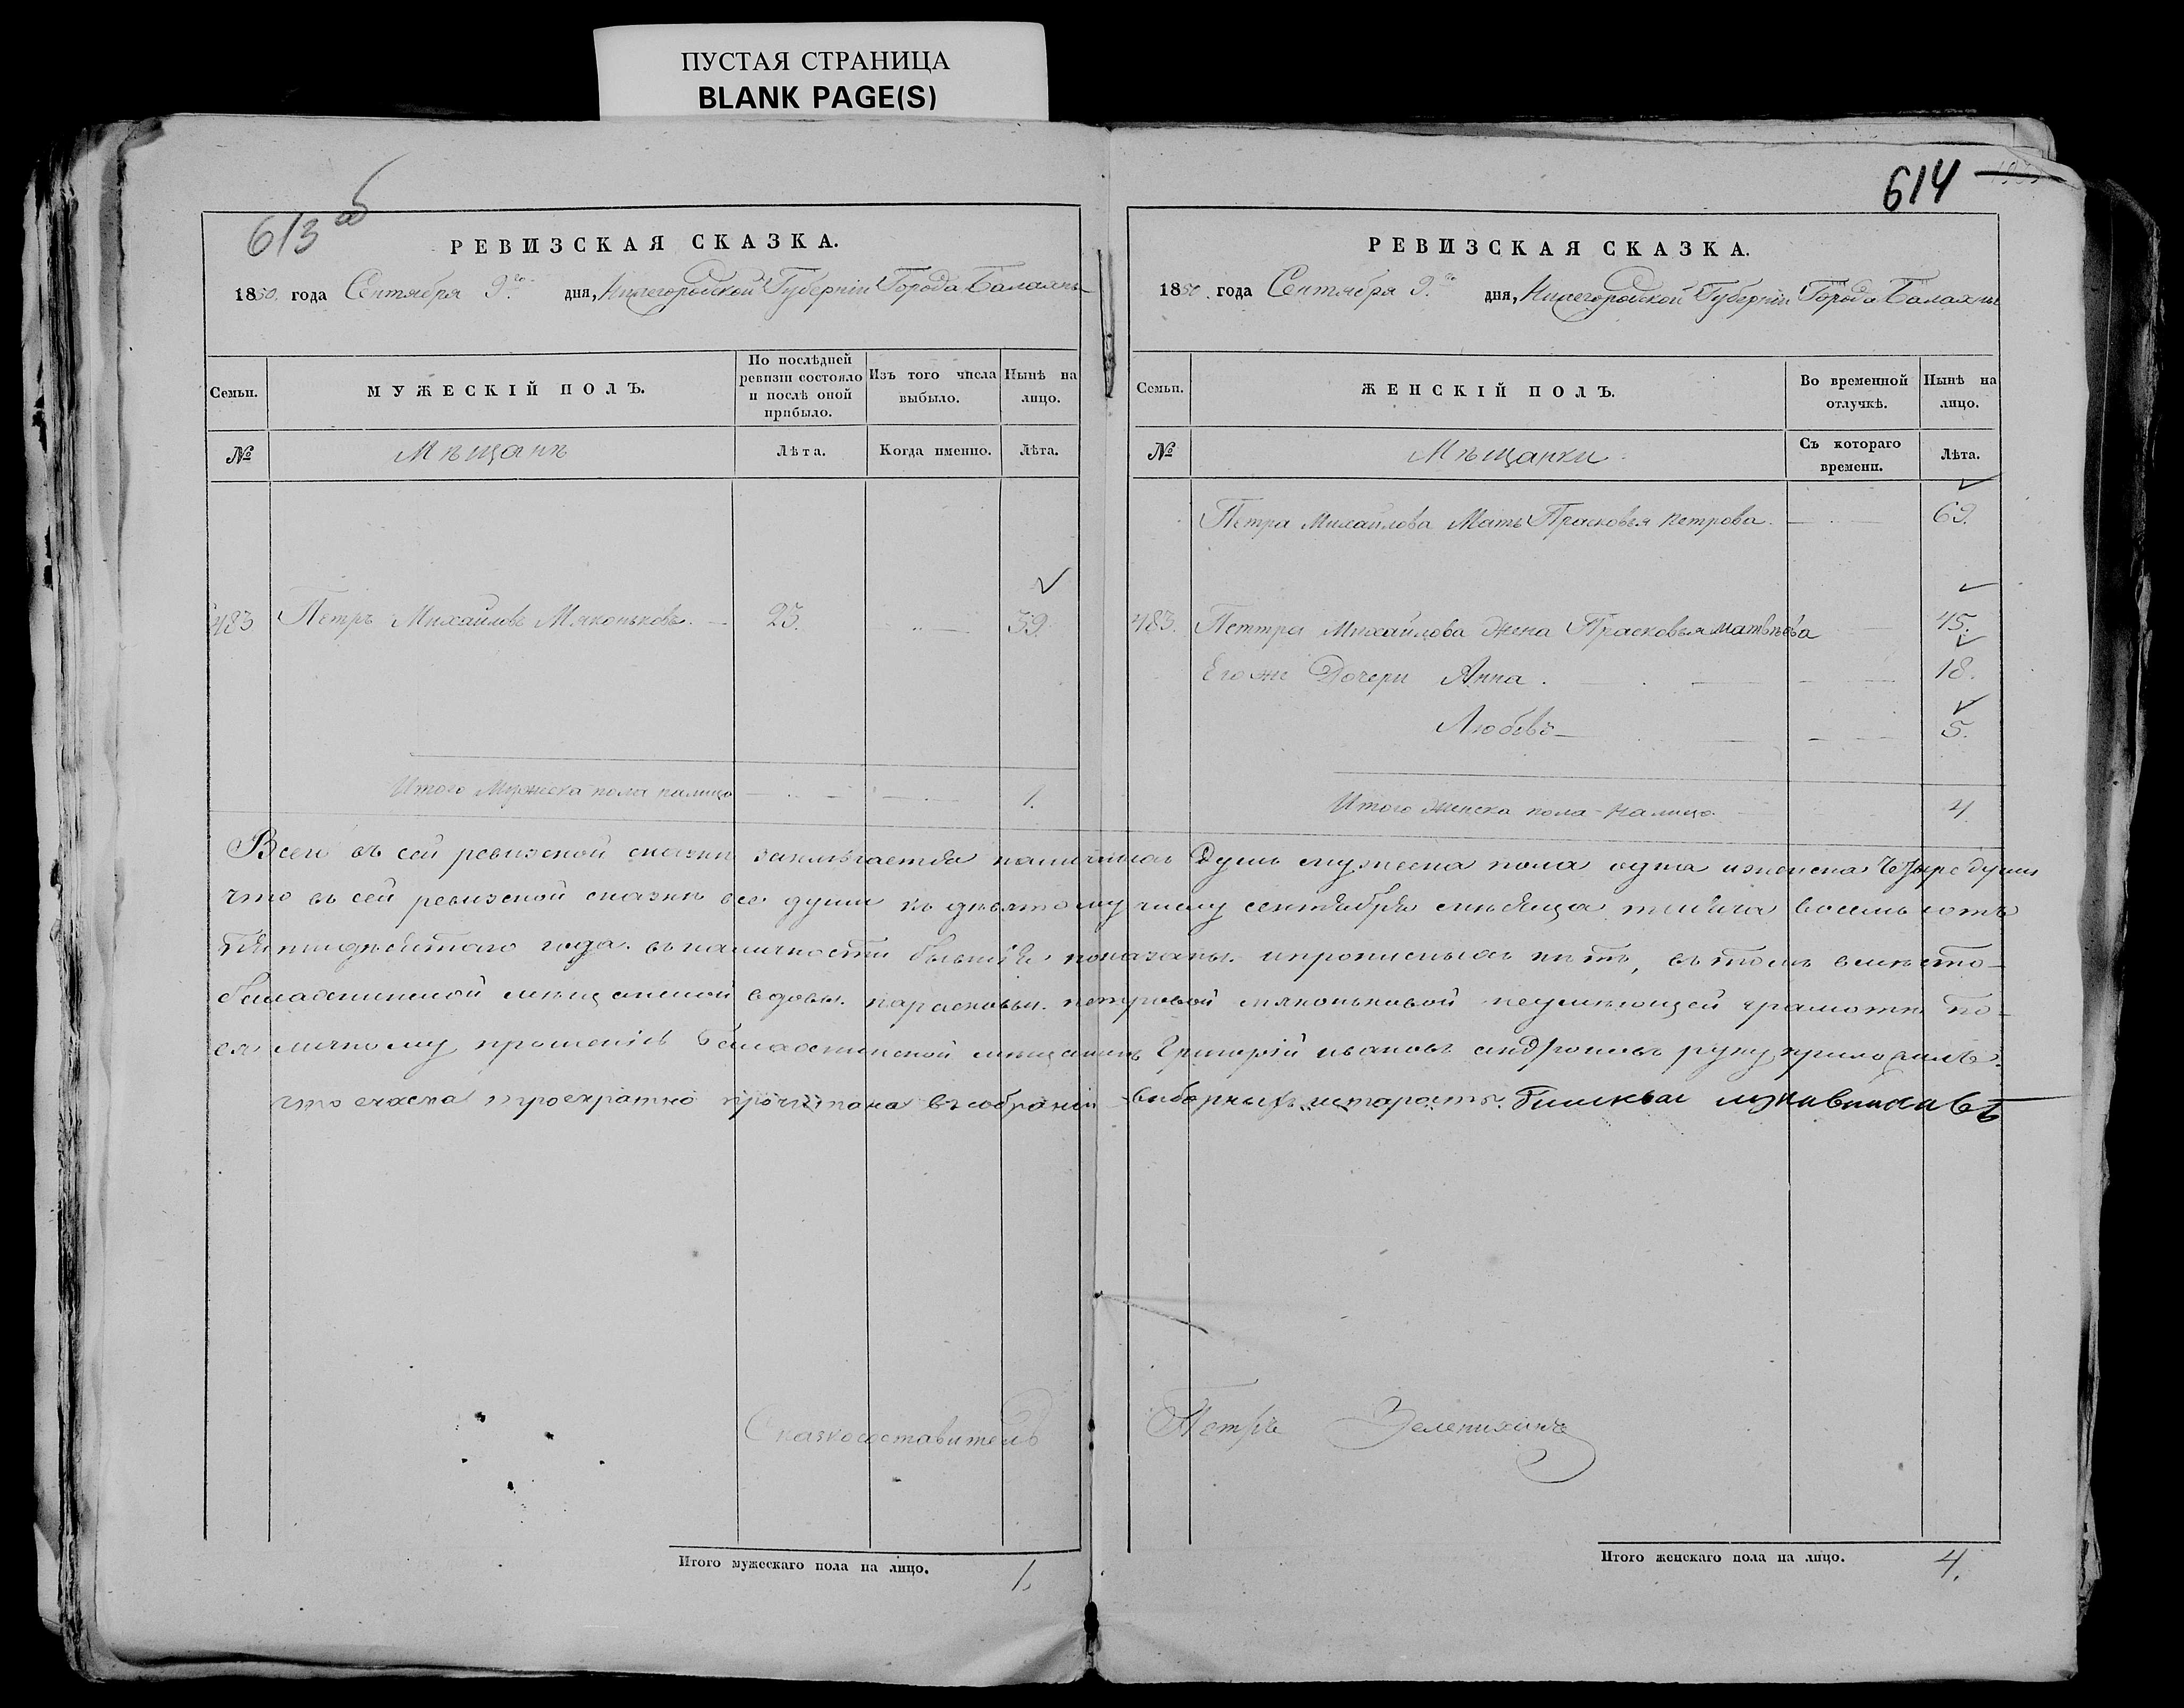 ПУСТАЯ СТРАНИЦА
BLANK PAGE(S)
613 об
РЕВИЗСКАЯ СКАЗКА.
1850. года Сентября 9го дня, Нижегородской Губерніи Города Балахны
Семьи. МУЖЕСКІЙ ПОЛЪ. По послѣдней ревизіи состояло и послѣ оной прибыло. Изъ того числа выбыло. Нынѣ на лицо.
№ Мѣщанъ Лѣта. Когда именно. Лѣта.
483 Петръ Михайловъ Мяконьковъ. 23. 39.
Итого Мужеска пола налицо 1.
614
РЕВИЗСКАЯ СКАЗКА.
1850. года Сентября 9го дня, Нижегородской Губерніи Города Балахны
Семьи. ЖЕНСКІЙ ПОЛЪ. Во временной отлучкѣ. Нынѣ на лицо.
№ Мѣщанки Съ котораго времени. Лѣта.
Петра Михайлова Мать Прасковья петрова. 69.
483. Петтра Михайлова Жена Прасковья матвѣева 45.
Его же Дочери Анна. 18.
Любовь 5.
Итого женска пола налицо. 4
Всего въ сей ревизской сказки наличныхъ Душъ мужеска пола одна иженска Четыре души
что въ сей ревизской сказкѣ все души къ девятому числу сентября мѣсяца тысяча восемь сотъ
пятидесятого года. въналичности бывшія показаны. ипрописныхъ нѣтъ, въ томъ вмѣсто
балахнинской мѣщанской вдовы. парасковьи. петровой мяконьковой неумѣющей грамотѣ по
ея личному прошенію Балахнинской мѣщанинъ Григорій ивановъ андроновъ руку приложилъ.
что скаска троекратно прочитана въ собраніи выборныхъ истаростъ.
Сказкосоставитель Петръ Зеленихинъ
Итого мужескаго пола на лицо. 1.
Итого женскаго пола на лицо. 4.